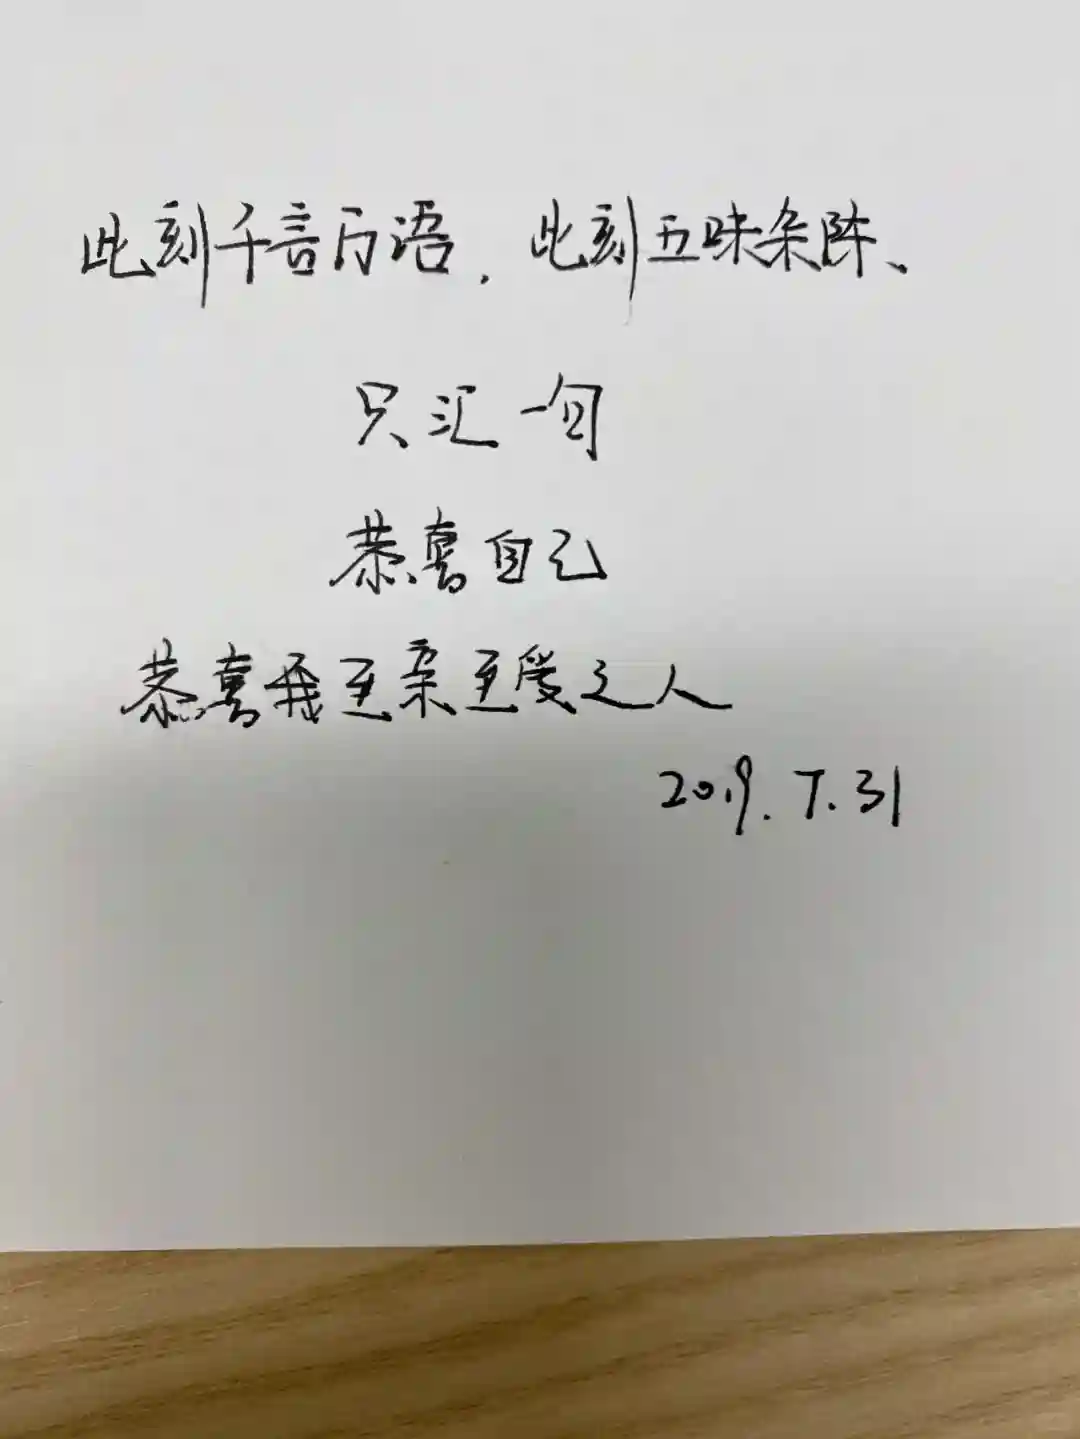 此刻千言万语，此刻五味杂陈、
只汇一句
恭喜自己
恭喜我至亲至爱之人
2019.7.31